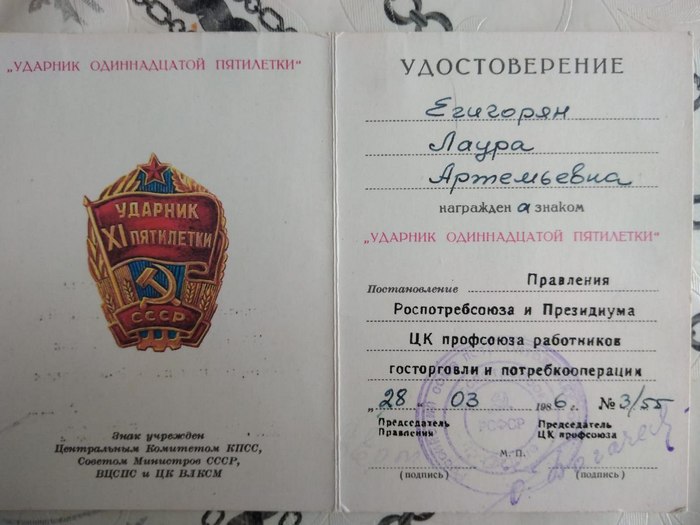 „УДАРНИК ОДИННАДЦАТОЙ ПЯТИЛЕТКИ“
УДАРНИК
XI ПЯТИЛЕТКИ
СССР
Знак учрежден
Центральным Комитетом КПСС,
Советом Министров СССР,
ВЦСПС и ЦК ВЛКСМ
УДОСТОВЕРЕНИЕ
Егигорян
Лаура
Артемьевна
награжден а знаком
„УДАРНИК ОДИННАДЦАТОЙ ПЯТИЛЕТКИ“
Постановление Правления
Роспотребсоюза и Президиума
ЦК профсоюза работников
госторговли и потребкооперации
„28“ 03 1986 г. №3/55
Председатель Председатель
Правления ЦК профсоюза
РСФСР
М. П.
(подпись) (подпись)